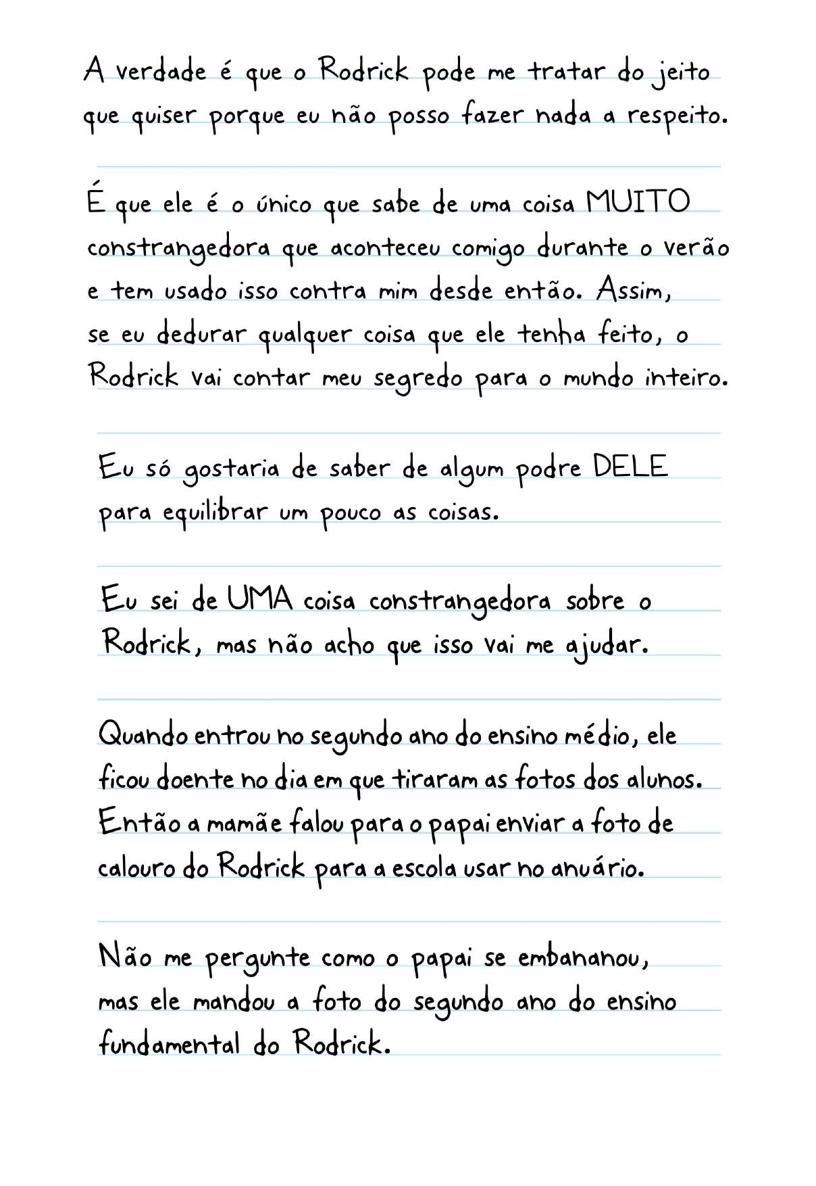 A verdade é que o Rodrick pode me tratar do jeito
que quiser porque eu não posso fazer nada a respeito.
É que ele é o único que sabe de uma coisa MUITO
constrangedora que aconteceu comigo durante o verão
e tem usado isso contra mim desde então. Assim,
se eu dedurar qualquer coisa que ele tenha feito, o
Rodrick vai contar meu segredo para o mundo inteiro.
Eu só gostaria de saber de algum podre DELE
para equilibrar um pouco as coisas.
Eu sei de UMA coisa constrangedora sobre o
Rodrick, mas não acho que isso vai me ajudar.
Quando entrou no segundo ano do ensino médio, ele
ficou doente no dia em que tiraram as fotos dos alunos.
Então a mamãe falou para o papai enviar a foto de
calouro do Rodrick para a escola usar no anuário.
Não me pergunte como o papai se embananou,
mas ele mandou a foto do segundo ano do ensino
fundamental do Rodrick.